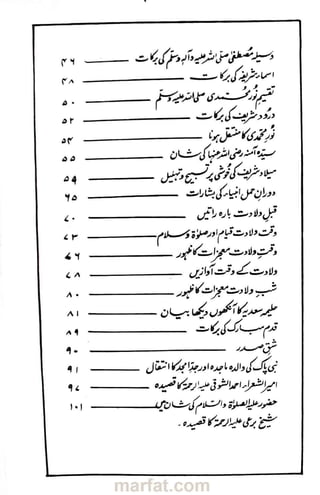 وسیلہ مصطفیٰ صلی اللہ علیہ وآلہ وسلم کی برکات ۴۶
اسماء شریفہ کی برکات ۴۸
تقسیم نورِ محمدی صلی اللہ علیہ وسلم ۵۰
درود شریف کی برکات ۵۲
نورِ محمدی کا منتقل ہونا ۵۴
سیدہ آمنہ رضی اللہ عنہا کی شان ۵۵
میلاد شریف کی خوشی پر تسبیح و تہلیل ۵۹
دورانِ حمل انبیاء کی بشارات ۶۵
قبلِ ولادت بارہ راتیں ۷۰
وقتِ ولادت قیام اور صلوٰۃ و سلام ۷۳
وقتِ ولادت معجزات کا ظہور ۷۶
ولادت کے وقت آوازیں ۷۸
شبِ ولادت معجزات کا ظہور ۸۰
حلیمہ سعدیہ کا آنکھوں دیکھا بیان ۸۱
قدم مبارک کی برکات ۸۹
شقِ صدر ۹۰
نبی پاک کی والدہ ماجدہ اور جدِ امجد کا انتقال ۹۱
امیر الشعراء احمد الشوقی علیہ الرحمۃ کا قصیدہ ۹۷
حضور علیہ الصلوٰۃ والسلام کی شان میں ۱۰۱
شیخ برعی علیہ الرحمۃ کا قصیدہ۔
marfat.com